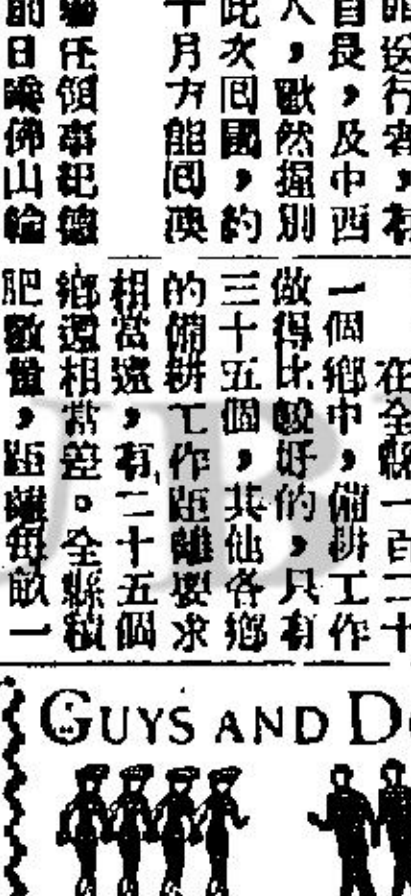 自長，及中西
人，歡然握別
此次囘國，約
十月方能囘澳
任領事紀德
前日乘佛山輪
在全縣一百二十
一個鄉中，備耕工作
做得比較好的，只有
三十五個，其他各鄉
的備耕工作距離要求
相當遠，有二十五個
鄉還相當差。全縣積
肥數量，距離每畝一
GUYS AND